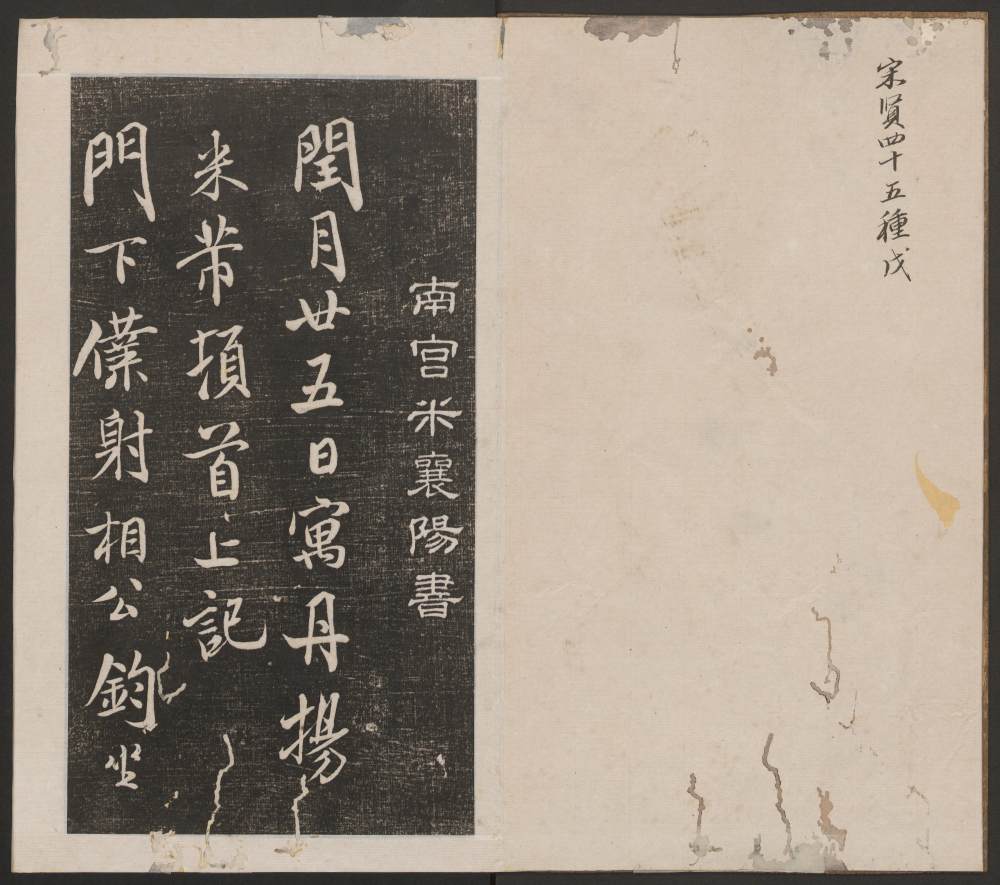 宋賢四十五種戊
南宮米襄陽書
閏月廿五日寓丹揚
米芾頓首上記
門下僕射相公鈞坐